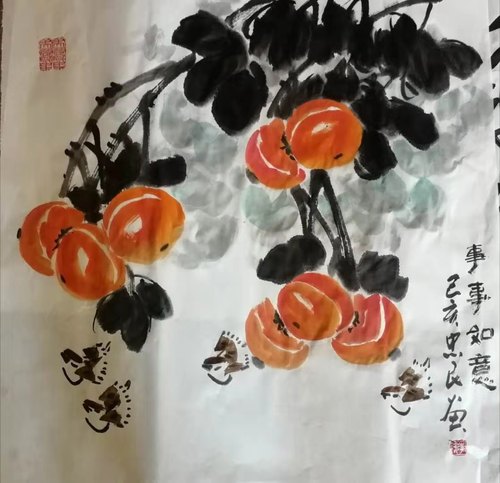 事事如意
己亥忠良画